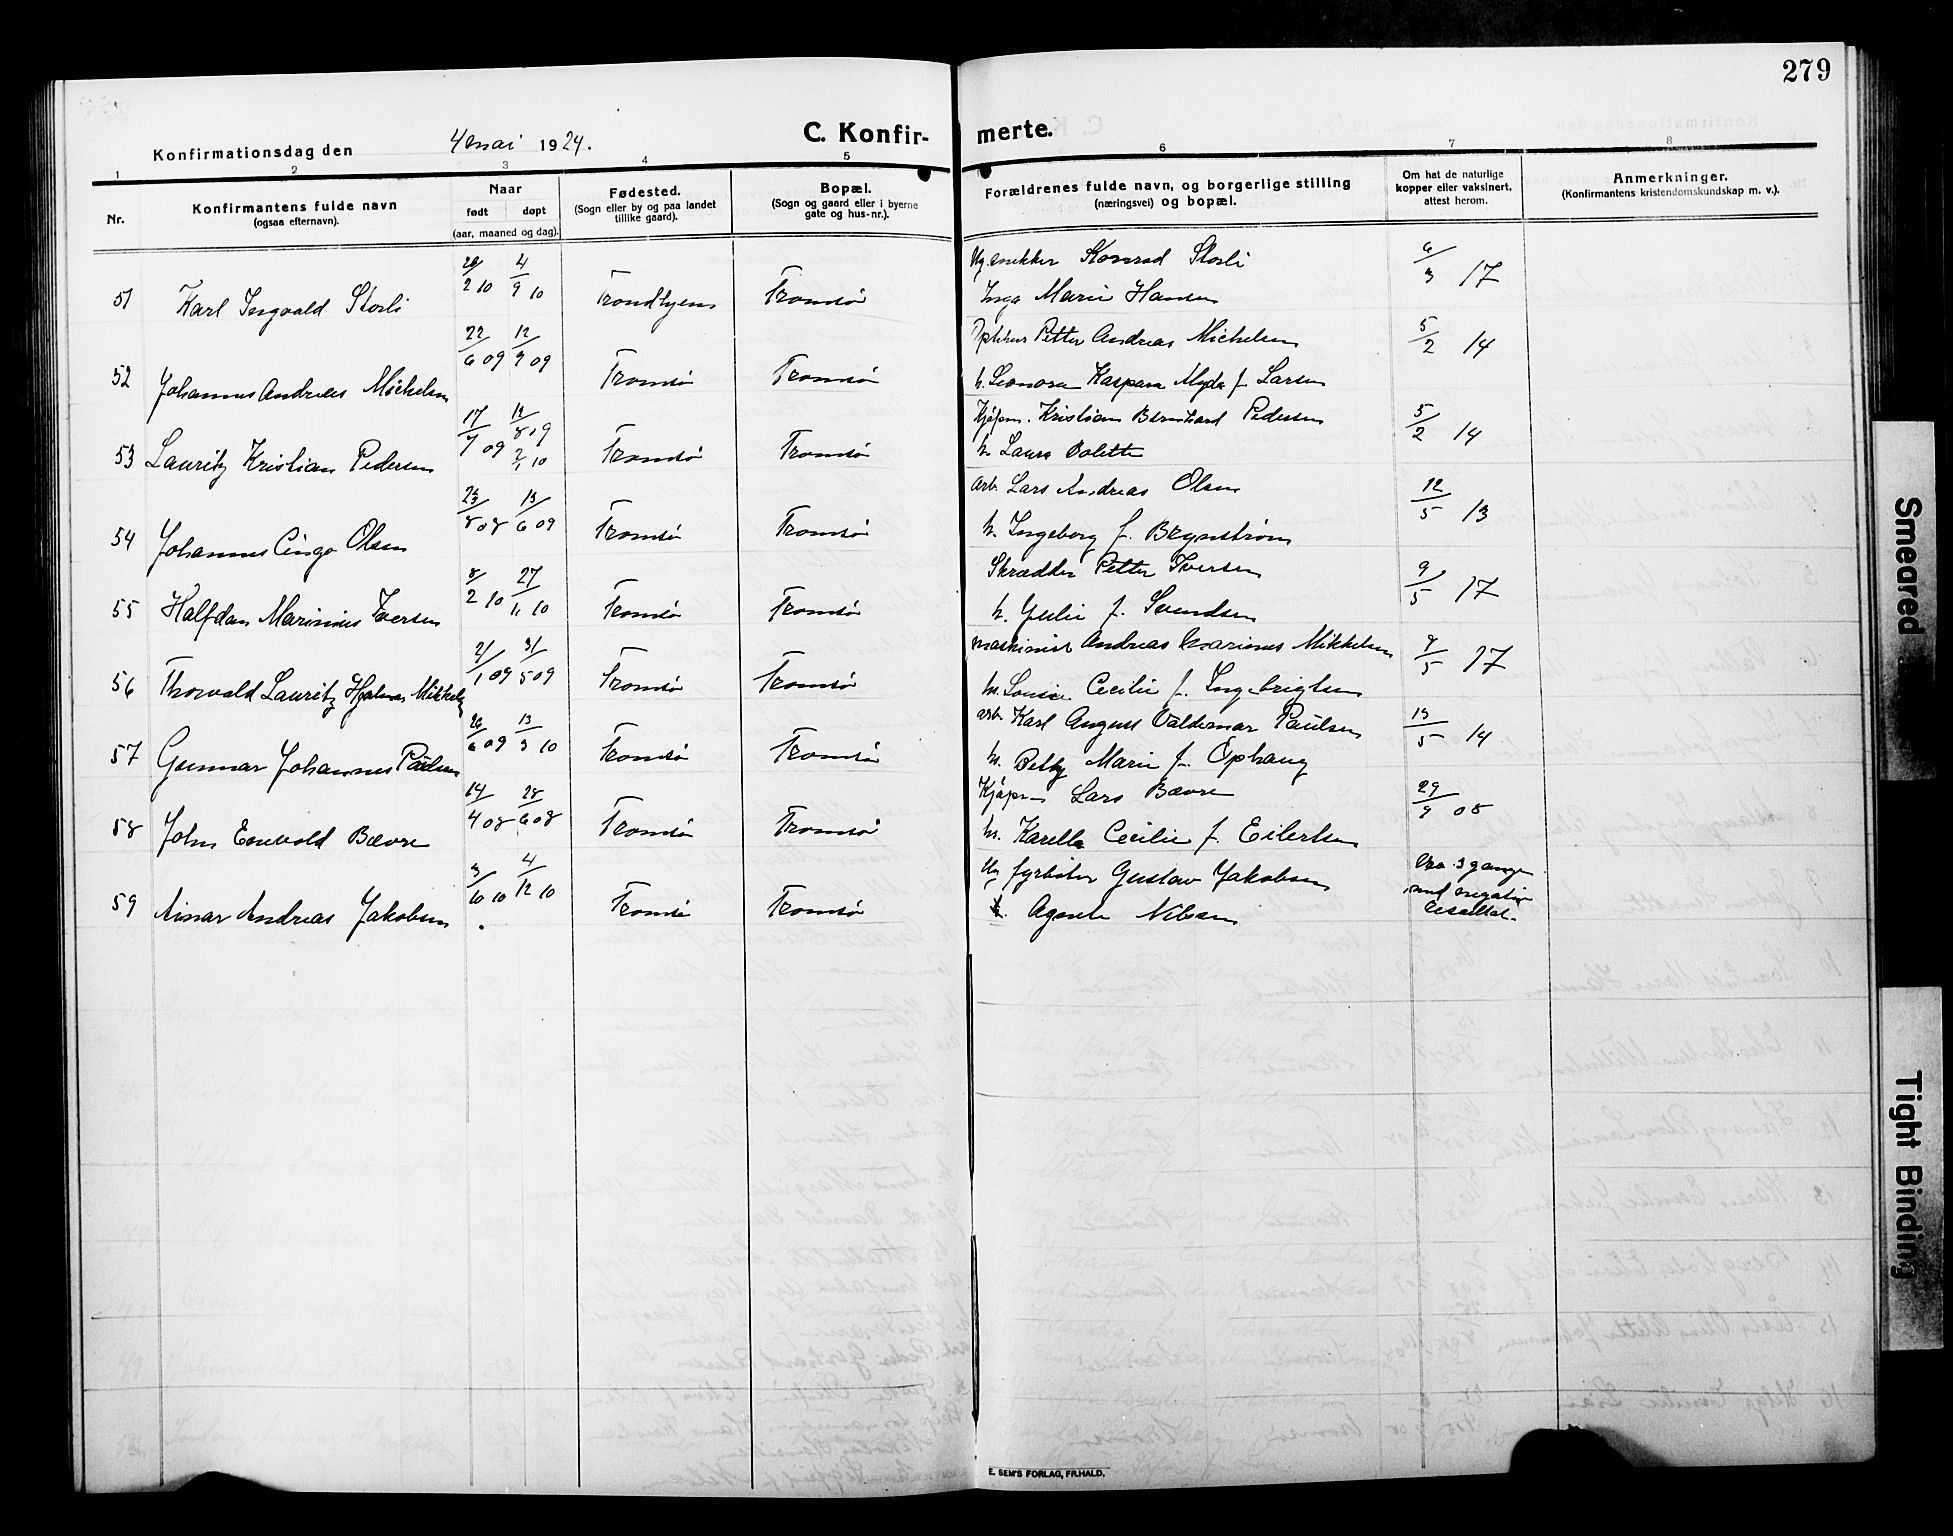 279
C. Konfir- merte.
Konfirmationsdag den 4 mai 1924.
1 2 3 4 5 6 7 8
Nr.
Konfirmantens fulde navn
(ogsaa efternavn).
Naar
født døpt
(aar, maaned og dag).
Fødested.
(Sogn eller by og paa landet
tillike gaard).
Bopæl.
(Sogn og gaard eller i byerne
gate og hus-nr.).
Forældrenes fulde navn, og borgerlige stilling
(næringsvei) og bopæl.
Om hat de naturlige
kopper eller vaksinert,
attest herom.
Anmerkninger.
(Konfirmantens kristendomskundskap m. v.).
51 Karl Ingvald Storli 4/9 10 Trondhjem Tromsø Konrad Storli 6/3 17
Inga Marie Hansen
52 Johannes Andreas Michelsen 22/6 09 12/9 09 Tromsø Tromsø Petter Andreas Michelsen 5/2 14
h. Leonora Kaspara f. Larsen
53 Lauritz Kristian Pedersen 17/7 09 2/1 10 Tromsø Tromsø Kjøpm. Kristian Bernhard Pedersen 5/2 14
h. Laura Oolette
54 Johannes Olsen 23/8 08 13/6 09 Tromsø Tromsø arb. Lars Andreas Olsen 12/5 13
h. Ingeborg f. Brynstrøm
55 Halfdan Marinius Iversen 8/2 10 27/11 10 Tromsø Tromsø Skrædder Petter Iversen 9/5 17
h. Julie f. Svendsen
56 Thorvald Lauritz Hjalmar Mikkels 21/1 09 31/5 09 Tromsø Tromsø maskinist Andreas Marinus Mikkelsen 7/5 17
h. Louise Cecilie f. Ingebrigtsen
57 Gunnar Johannes Paulsen 26/6 09 13/3 10 Tromsø Tromsø arb. Karl August Valdemar Paulsen 13/5 14
h. Betty Marie f. Ophaug
58 John Bævre 14/4 08 28/6 08 Tromsø Tromsø Kjøpm Lars Bævre 29/9 08
h. Karella Cecilie f. Eilertsen
59 Ainar Andreas Jakobsen 3/10 10 4/12 10 Tromsø Tromsø fyrbøter Gustav Jakobsen 3 gange
Nilsen negativ
resultat.
E. SEM'S FORLAG, FR.HALD.
Smeared
Tight Binding